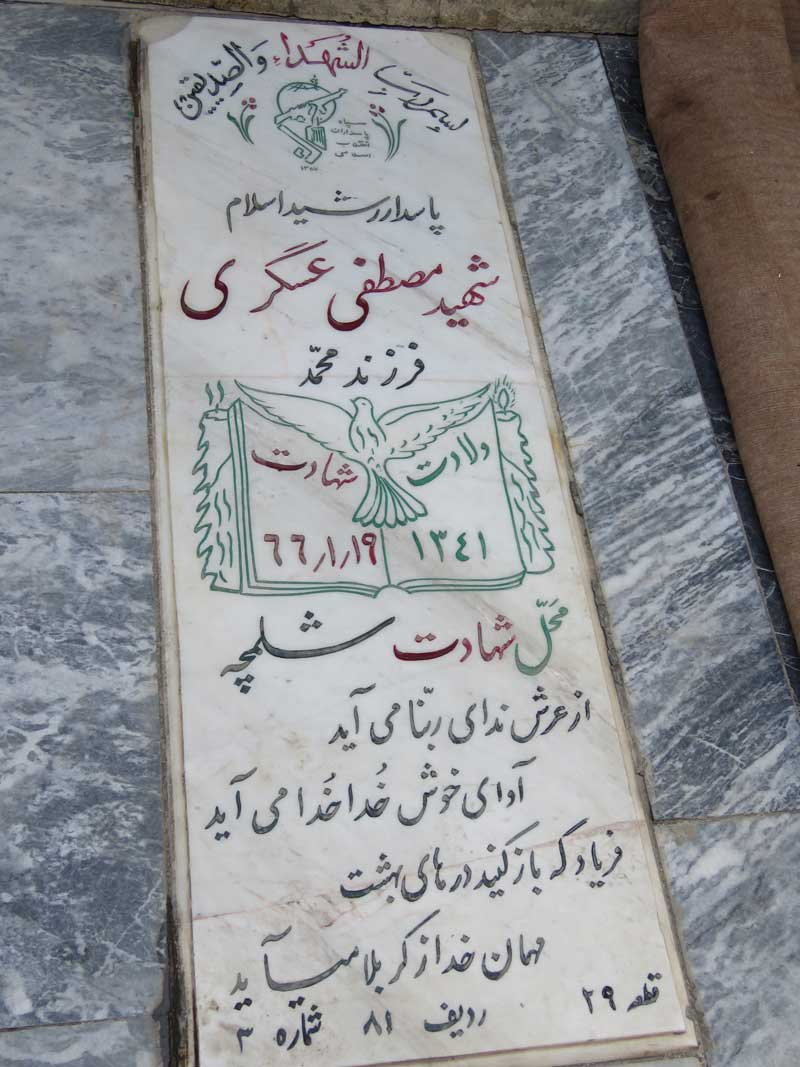 بسم رب الشُهَداءِ وَالصِدیقین
سپاه
پاسداران
انقلاب
اسلامی
پاسدار رشید اسلام
شهید مصطفی عسگری
فرزند محمّد
ولادت شهادت
۱۳٤۱ ۶۶/۱/۱۹
محَلّ شهادت شلمچه
از عرش ندای ربّنا می آید
آوای خوش خُدا خُدا می آید
فریاد که باز کنید درهای بهشت
مهمان خدا از کربلا میآید
قطعه ۲۹ ردیف ۸۱ شماره ۳